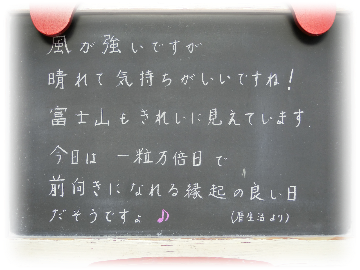 風が強いですが
晴れて気持ちがいいですね!
富士山もきれいに見えています.
今日は 一粒万倍日で
前向きになれる縁起の良い日
だそうですよ♪ (暦生活より)